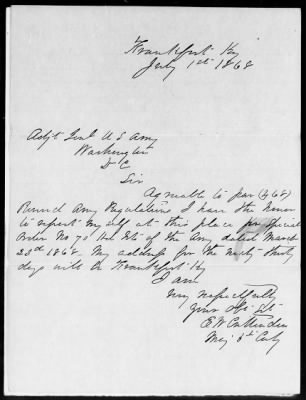 Frankfort Ky
July 1st 1868
Adjt Genl U S Army
Washington
D C
Sir
Agreeable to par (468)
Revised Army Regulations I have the honor
to report myself at this place per Special
Order No 70 Hd Qts of the Army dated March
23d 1868. My address for the next thirty
days will be Frankfort Ky
I am
Very respectfully
Your Obt Svt
E W Crittenden
Maj 5th Cavly